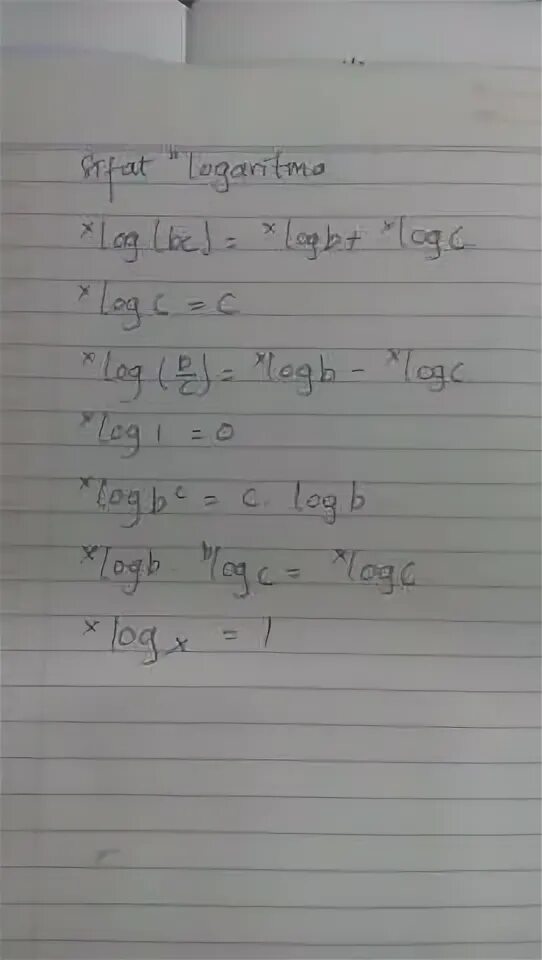 Sifat" logaritma
ˣlog (bc) = ˣlog b + ˣlog c
ˣlog c = c
ˣlog (b/c) = ˣlog b - ˣlog c
ˣlog 1 = 0
ˣlog bᶜ = c. log b
ˣlog b . ᵇlog c = ˣlog c
ˣlog x = 1